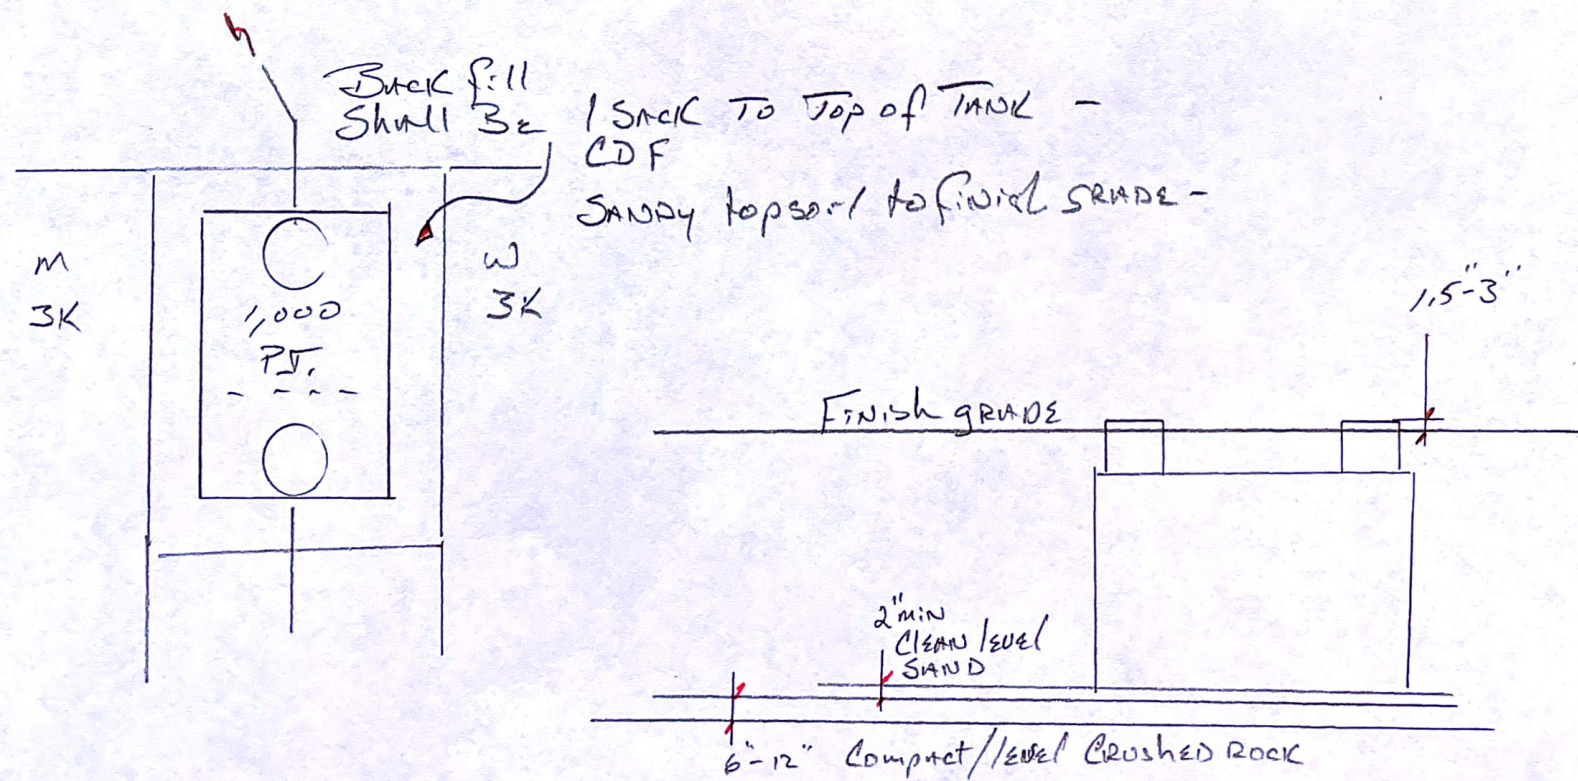 Back fill
Shall Be
1 SACK TO Top of TANK -
CDF
SANDY topsoil to finish GRADE -
M
3K
1,000
P.T.
W
3K
1,5"-3"
Finish GRADE
2" min
Clean level
SAND
6"-12" Compact/level CRUSHED ROCK